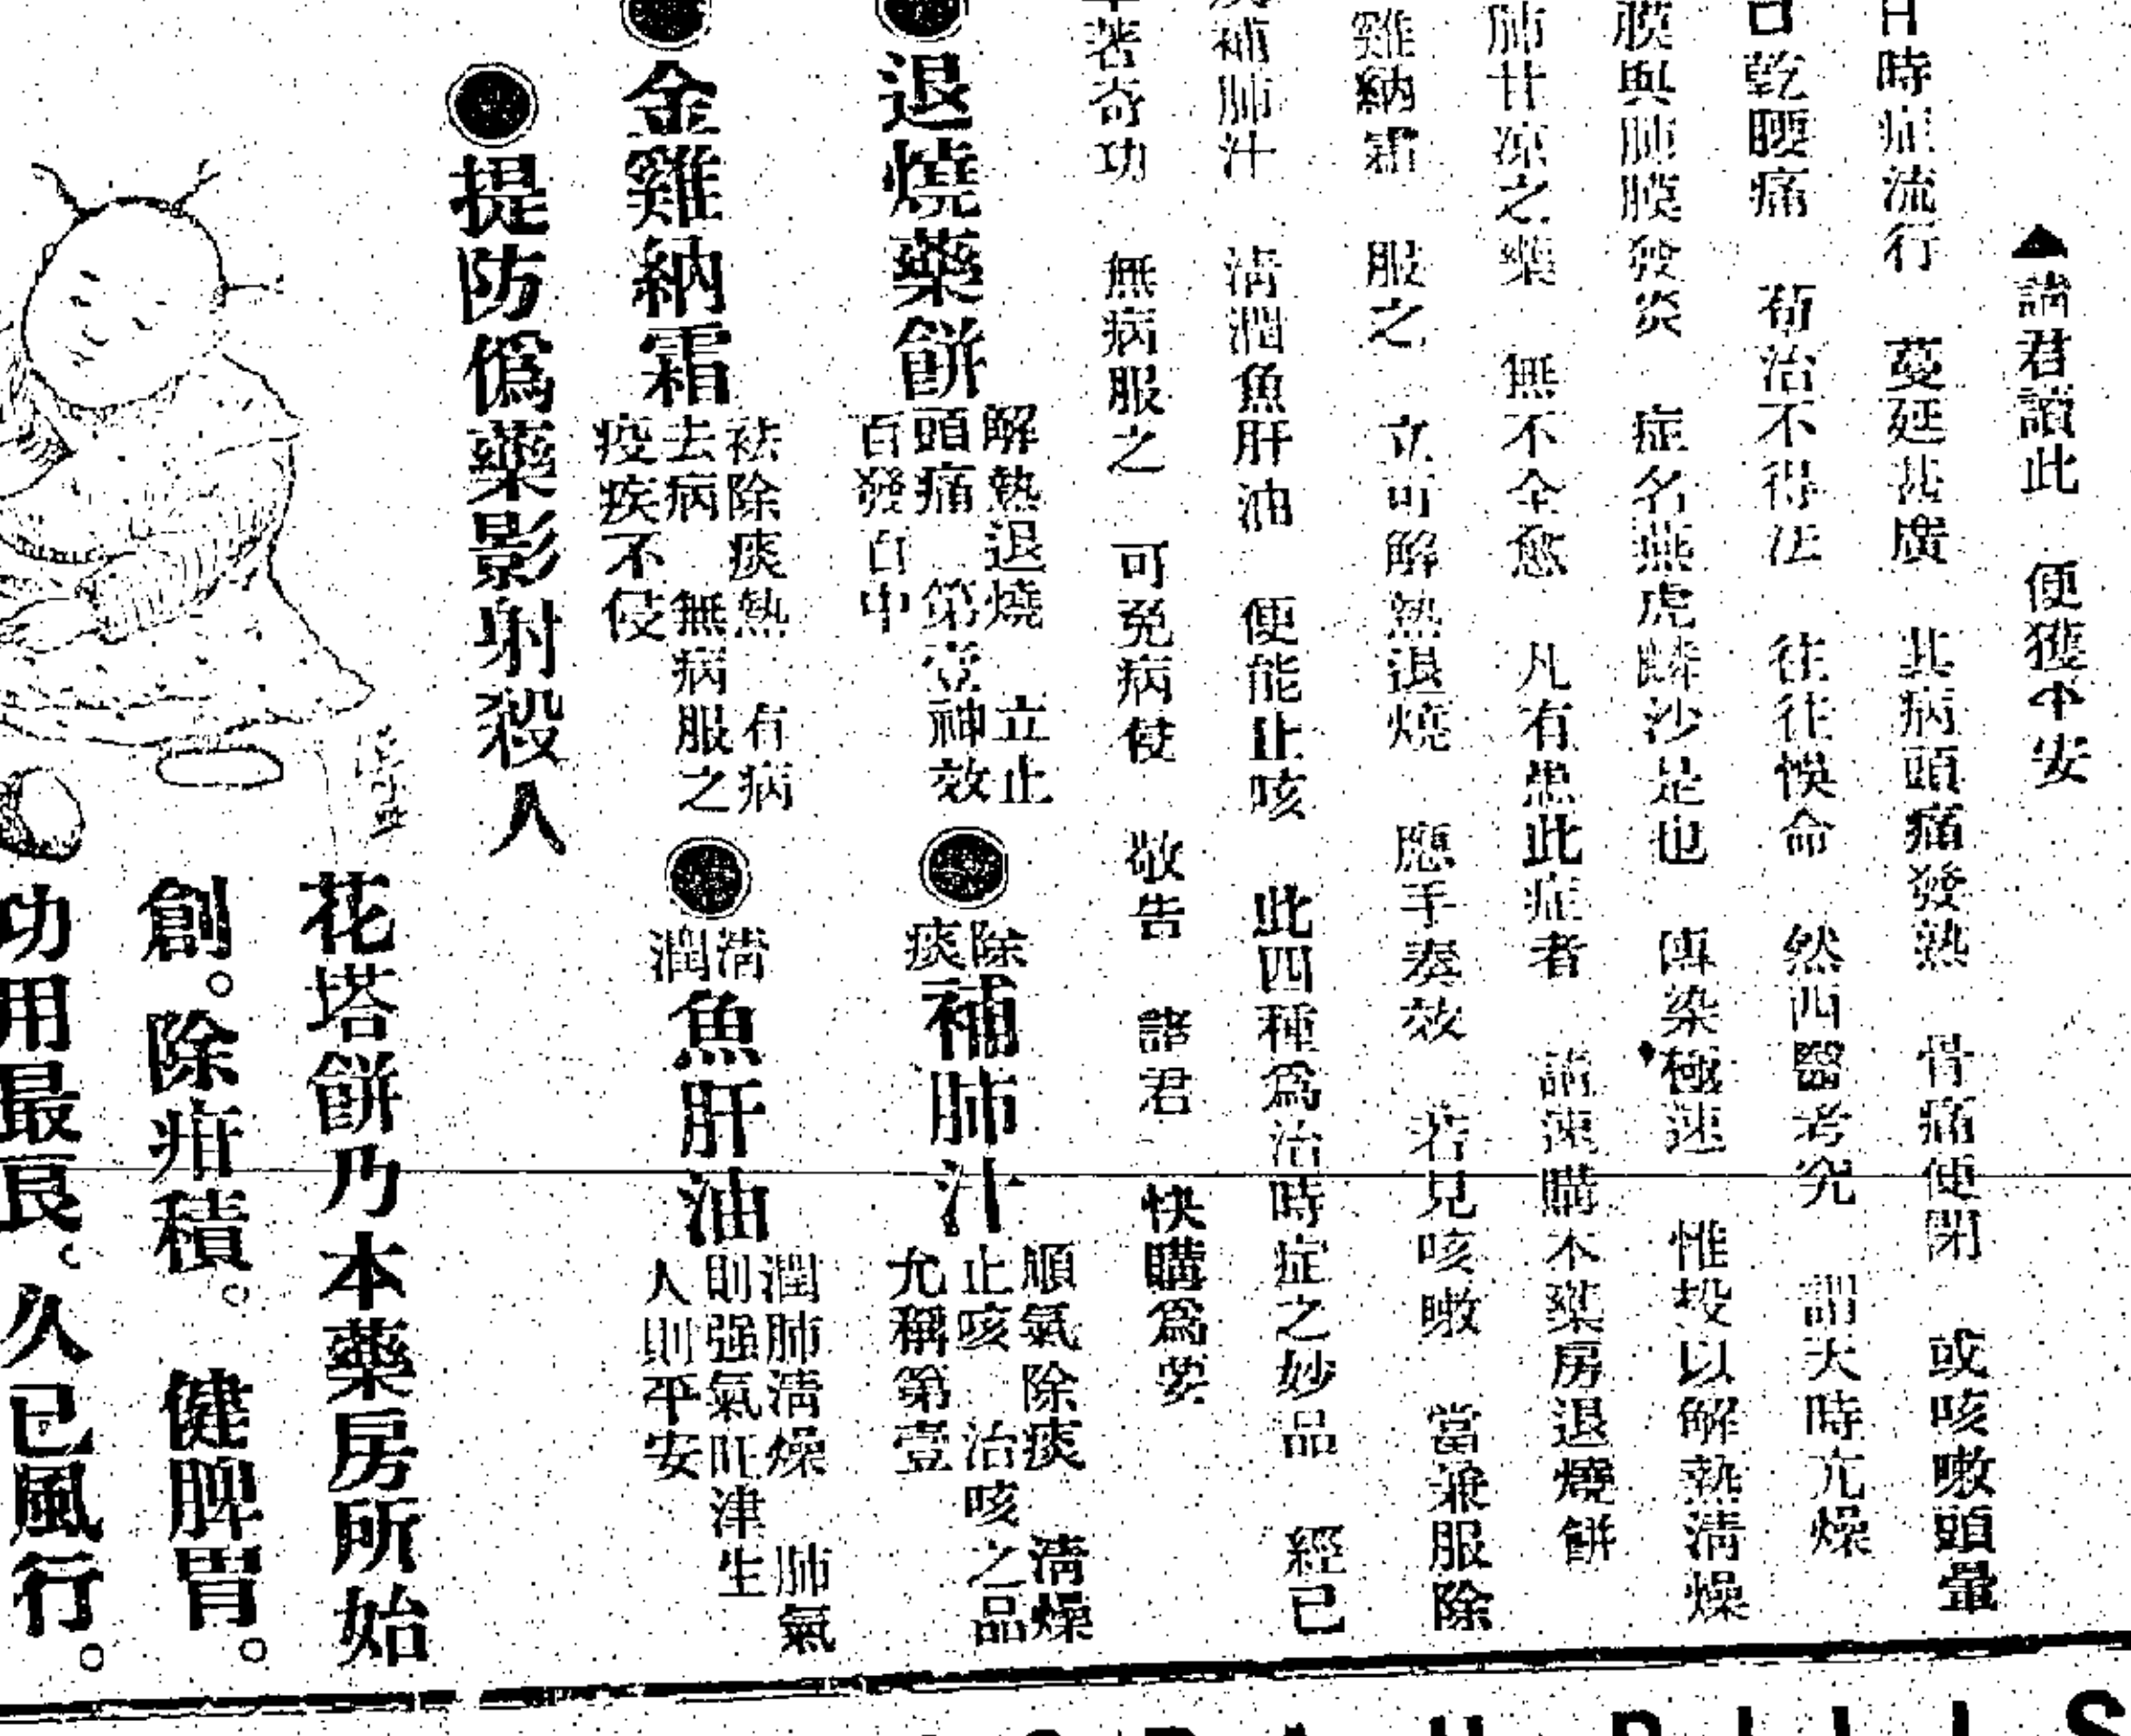 ▲請君讀此　便獲平安
日時症流行　蔓延甚廣　其病頭痛發熱　骨痛便閉　或咳嗽頭暈
口乾腰痛　苟治不得法　往往悞命　然西醫考究　謂天時亢燥
膜與肺膜發炎　症名燕虎麟沙是也　傳染極速　惟投以解熱清燥
肺甘凉之藥　無不全愈　凡有患此症者　請速購本藥房退燒餅
雞納霜　服之　立可解熱退燒　應手奏效　若見咳嗽　當兼服除
補肺汁　清潤魚肝油　便能止咳　此四種爲治時症之妙品　經已
著奇功　無病服之　可免病侵　敬告　諸君　快購爲要
退燒藥餅
解熱退燒　立止
頭痛　第壹神效
百發百中
除痰
補肺汁
順氣除痰　清燥
止咳　治咳之品
允稱第壹
金雞納霜
袪除痰熱　有病
去病　無病服之
疫疾不侵
清潤
魚肝油
潤肺清燥　肺氣
則强氣旺津生
人則平安
提防僞藥影射殺人
花塔餅乃本藥房所始
創。除疳積。健脾胃。
功用最良。久已風行。
PILLS